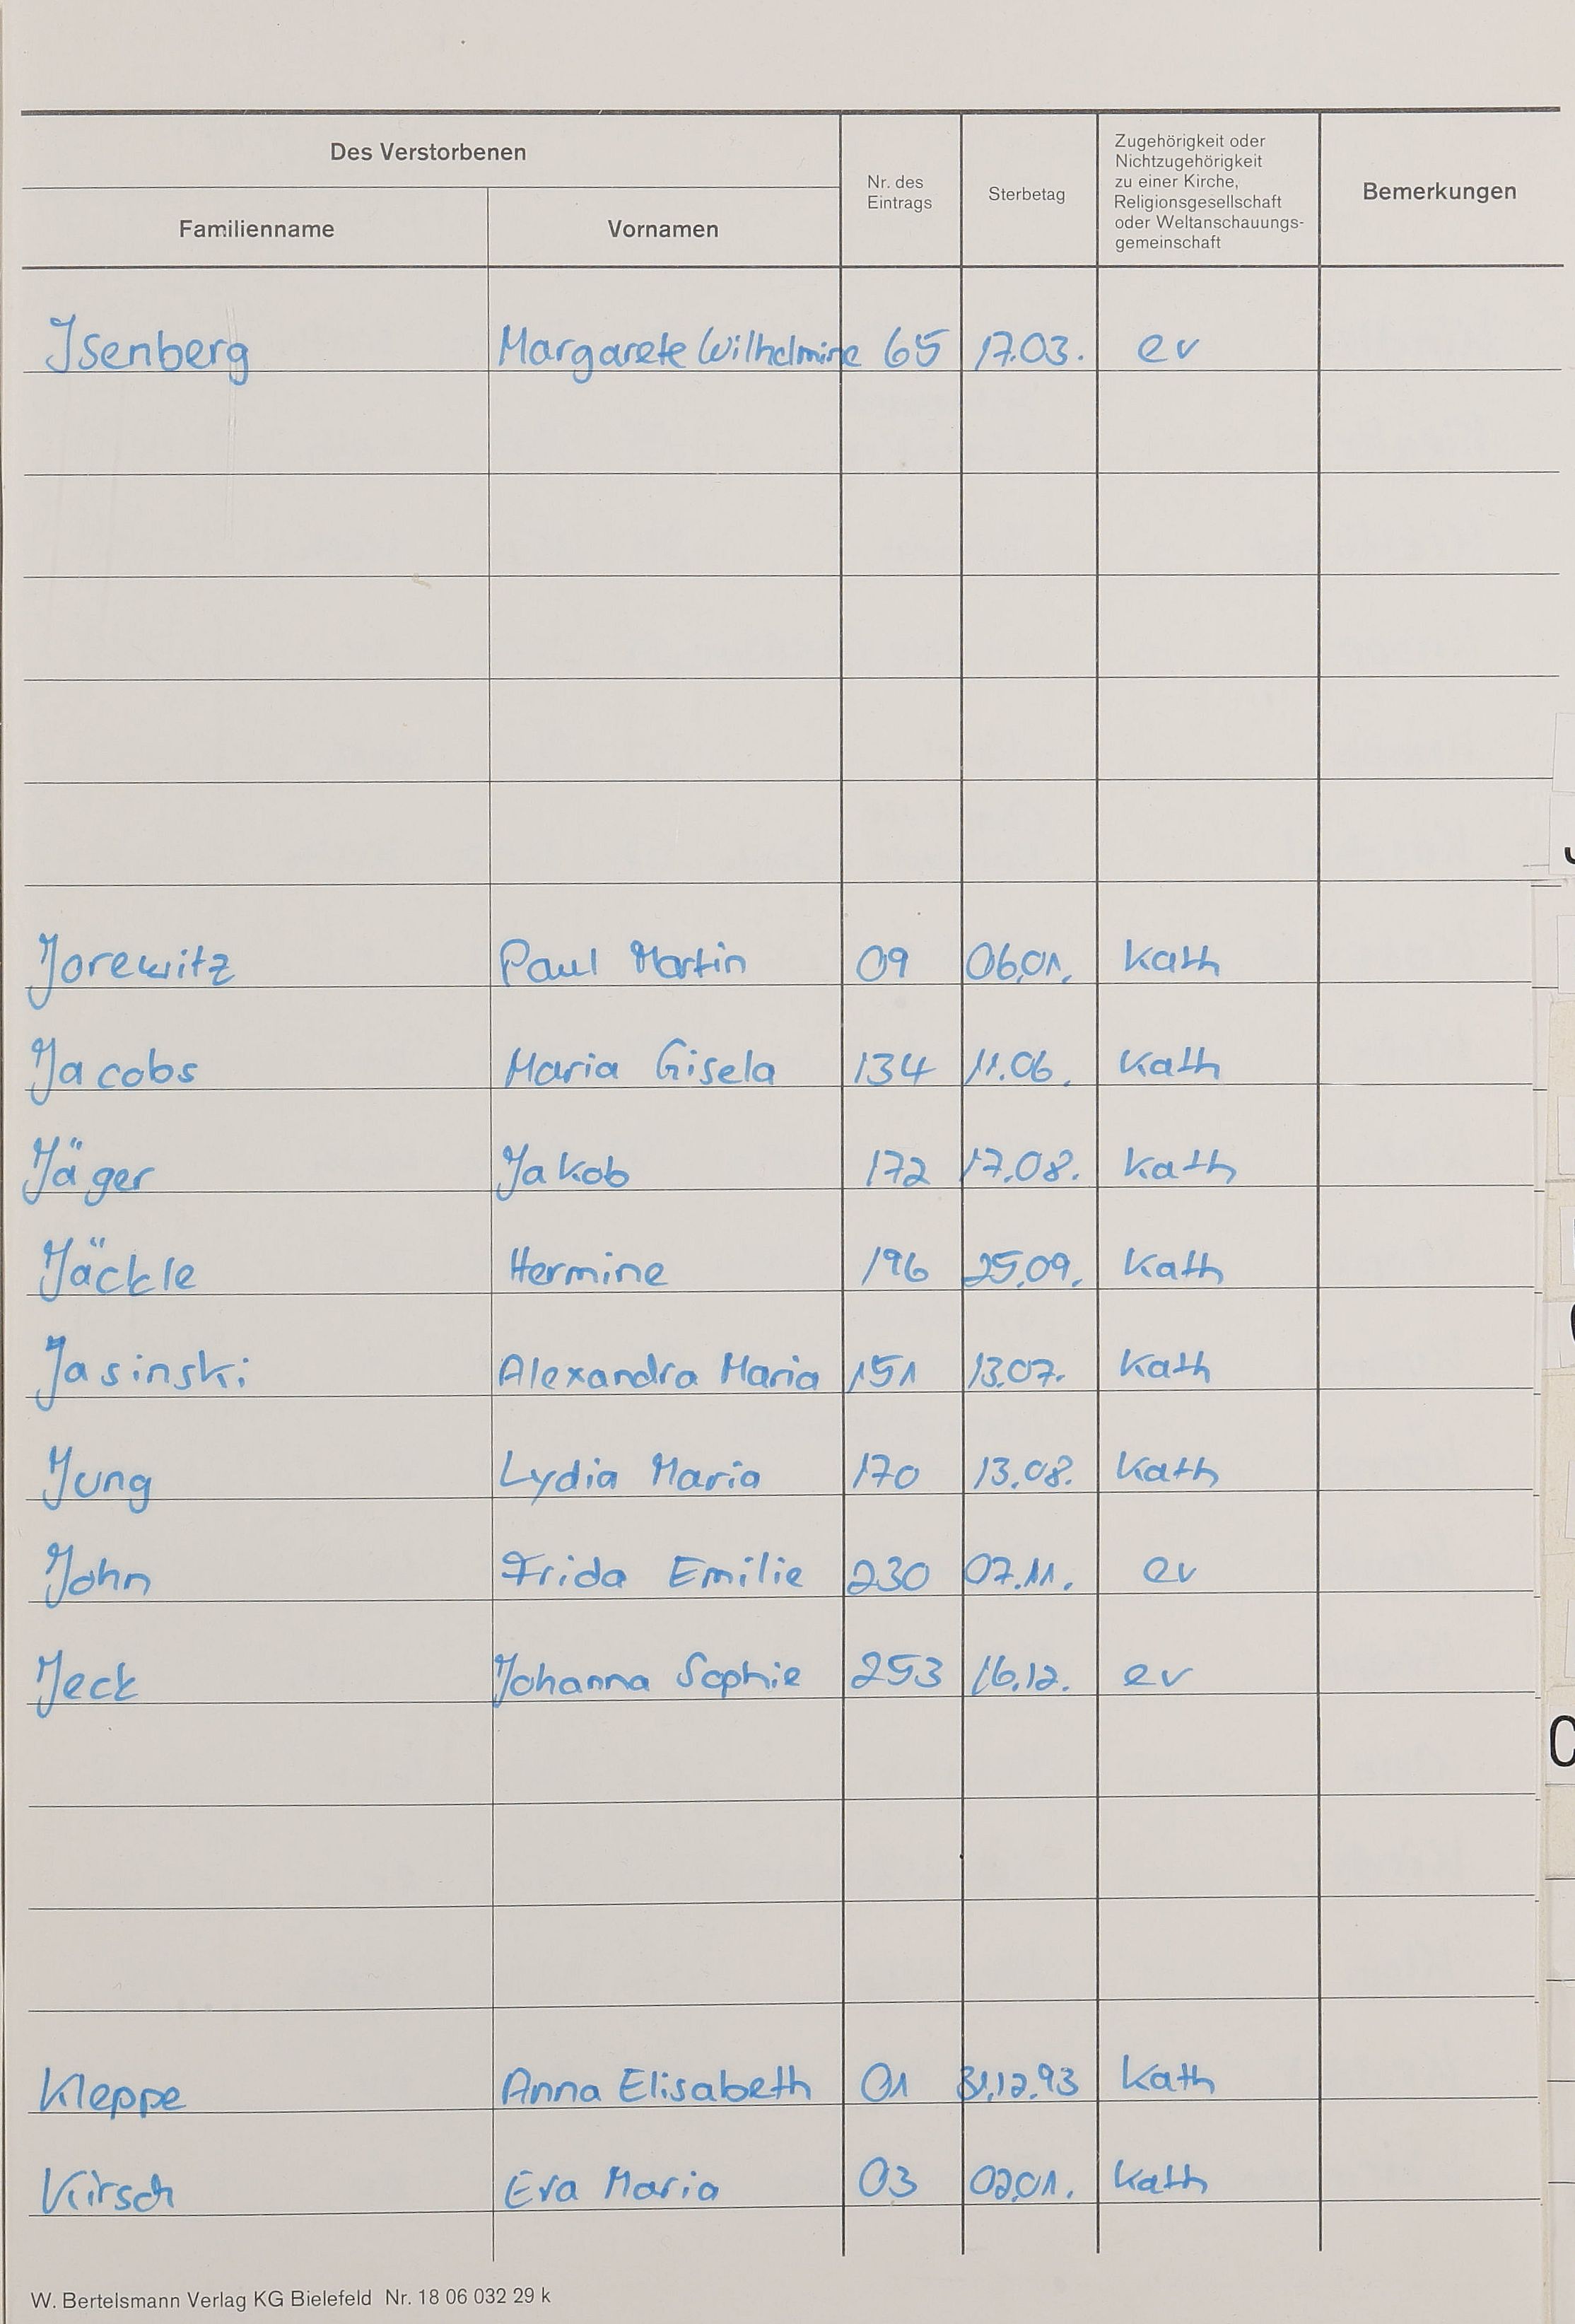 Des Verstorbenen
Familienname
Vornamen
Nr. des
Eintrags
Sterbetag
Zugehörigkeit oder
Nichtzugehörigkeit
zu einer Kirche,
Religionsgesellschaft
oder Weltanschauungs-
gemeinschaft
Bemerkungen
Isenberg Margarete Wilhelmine 65 17.03. ev
Jorewitz Paul Martin 09 06.01. Kath
Jacobs Maria Gisela 134 11.06. Kath
Jäger Jakob 172 17.08. Kath
Jäckle Hermine 196 25.09. Kath
Jasinski Alexandra Maria 151 13.07. Kath
Jung Lydia Maria 170 13.08. Kath
John Frida Emilie 230 07.11. ev
Jeck Johanna Sophie 253 16.12. ev
Kleppe Anna Elisabeth 01 31.12.93 Kath
Kirsch Eva Maria 03 02.01. Kath
W. Bertelsmann Verlag KG Bielefeld Nr. 18 06 032 29 k